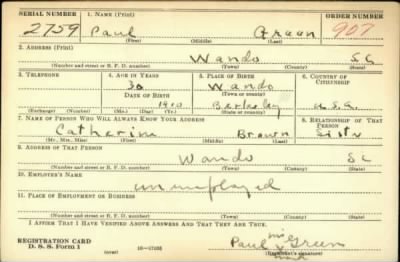 SERIAL NUMBER 1. NAME (Print) ORDER NUMBER
2759 Paul Green 907
(First) (Middle) (Last)
2. ADDRESS (Print)
Wando S C
(Number and street or R. F. D. number) (Town) (County) (State)
3. TELEPHONE 4. AGE IN YEARS 5. PLACE OF BIRTH 6. COUNTRY OF CITIZENSHIP
30 Wando
DATE OF BIRTH (Town or county)
1910 Berkeley U.S.A.
(Exchange) (Number) (Mo.) (Day) (Yr.) (State or country)
7. NAME OF PERSON WHO WILL ALWAYS KNOW YOUR ADDRESS 8. RELATIONSHIP OF THAT PERSON
Catharine Brown Sister
(Mr., Mrs., Miss) (First) (Middle) (Last)
9. ADDRESS OF THAT PERSON
Wando S C
(Number and street or R. F. D. number) (Town) (County) (State)
10. EMPLOYER'S NAME
unemployed
11. PLACE OF EMPLOYMENT OR BUSINESS
(Number and street or R. F. D. number) (Town) (County) (State)
I AFFIRM THAT I HAVE VERIFIED ABOVE ANSWERS AND THAT THEY ARE TRUE.
REGISTRATION CARD
D. S. S. Form 1 (over) Paul Green
(Registrant's signature)